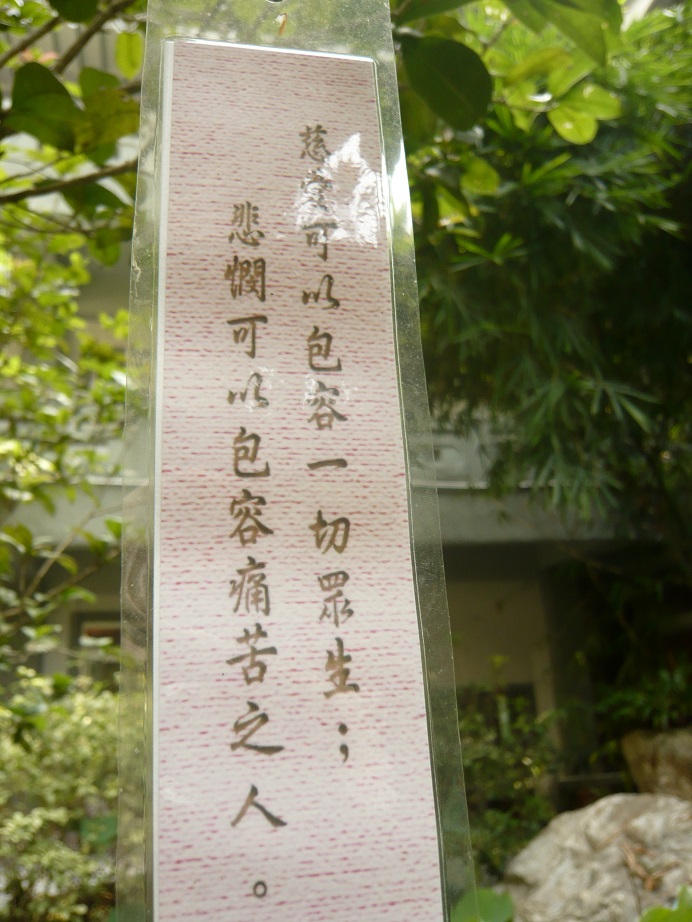 慈愛可以包容一切眾生；
悲憫可以包容痛苦之人。